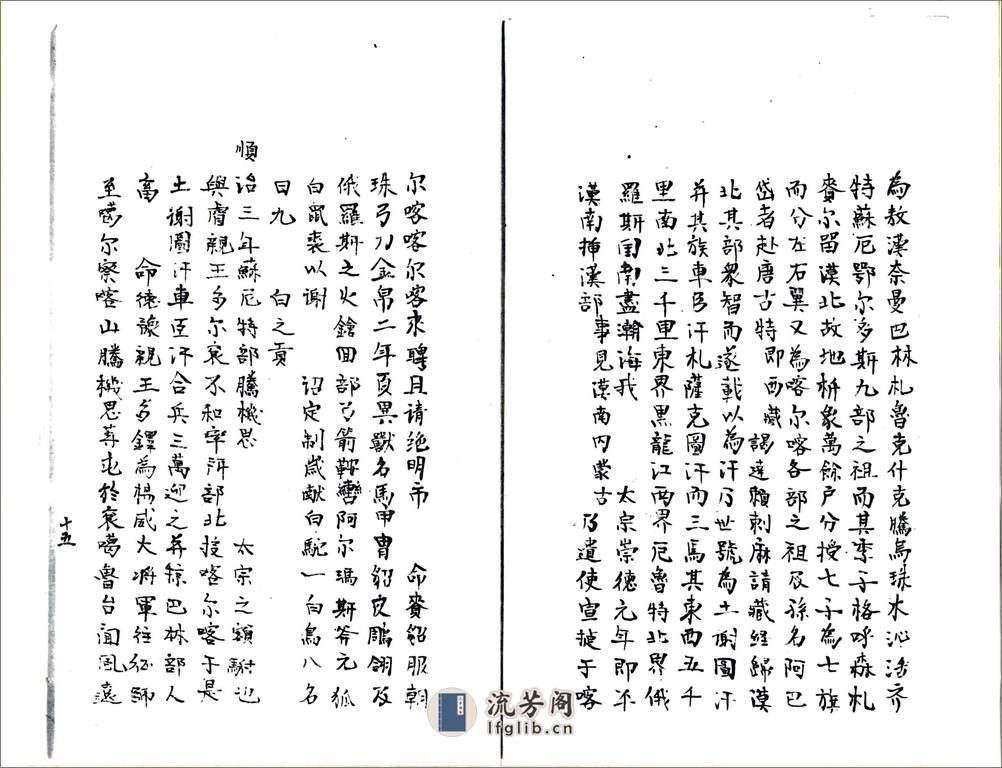 為敖漢奈曼巴林札魯克什克騰烏珠水沁浩齐
特蘇尼鄂尔多斯九部之祖而其季子格呼森札
賚尔留漠北故地枬衆萬餘户分授七子為七旗
而分左右翼又為喀尔喀各部之祖及孫名阿巴
岱者赴唐古特即西藏謁達賴剌麻請藏經歸漠
北其部衆智而遂載以為汗乃世號為土謝圖汗
并其族車臣汗札薩克圖汗而三馬其東西五千
里南北三千里東界黑龍江西界厄魯特北界俄
羅斯国南盡瀚海我 太宗崇德元年即平
漠南挿漢部事見漠南内蒙古 乃遣使宣㨗于喀
尔喀喀尔喀来聘且请绝明市 命賚貂服朝
珠弓刀金帛二年贡異獸名馬甲胄貂皮鵰翎及
俄羅斯之火鎗回部弓箭鞍轡阿尔瑪斯斧元狐
白鼠裘以谢 诏定制歲献白駝一白馬八名
曰九 白之貢
順治三年蘇尼特部騰機思 太宗之額駙也
與睿親王多尔衮不和率所部北投喀尔喀于是
土谢圖汗車臣汗合兵三萬迎之并掠巴林部人
畜 命德豫親王多鐸為揚威大将軍往征師
至噶尔察喀山騰機思等屯於衮噶魯台闻風遠
十五
流芳阁
lfglib.cn